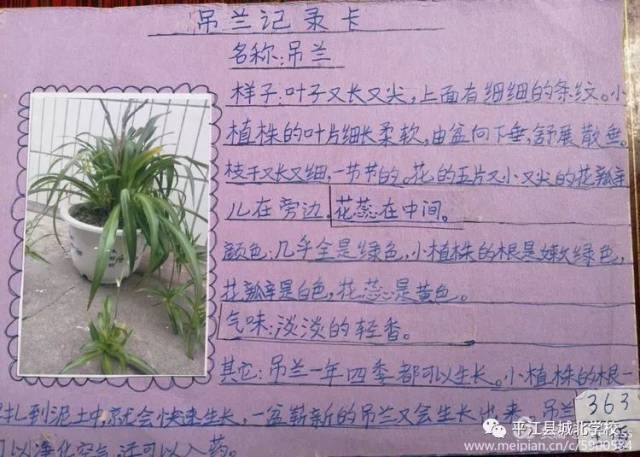 吊兰记录卡
名称:吊兰
样子:叶子又长又尖,上面有细细的条纹。小
植株的叶片细长柔软,由盆向下垂,舒展散垂。
枝干又长又细,一节节的。花的五片又小又尖的花瓣
儿在旁边,花蕊在中间。
颜色:几乎全是绿色,小植株的根是嫩绿色,
花瓣是白色,花蕊是黄色。
气味:淡淡的轻香。
其它:吊兰一年四季都可以生长。小植株的根一
扎到泥土中,就会快速生长,一盆崭新的吊兰又会生长出来。吊兰
可以净化空气,还可以入药。
363
平江县城北学校
www.meipian.cn/c/5900584